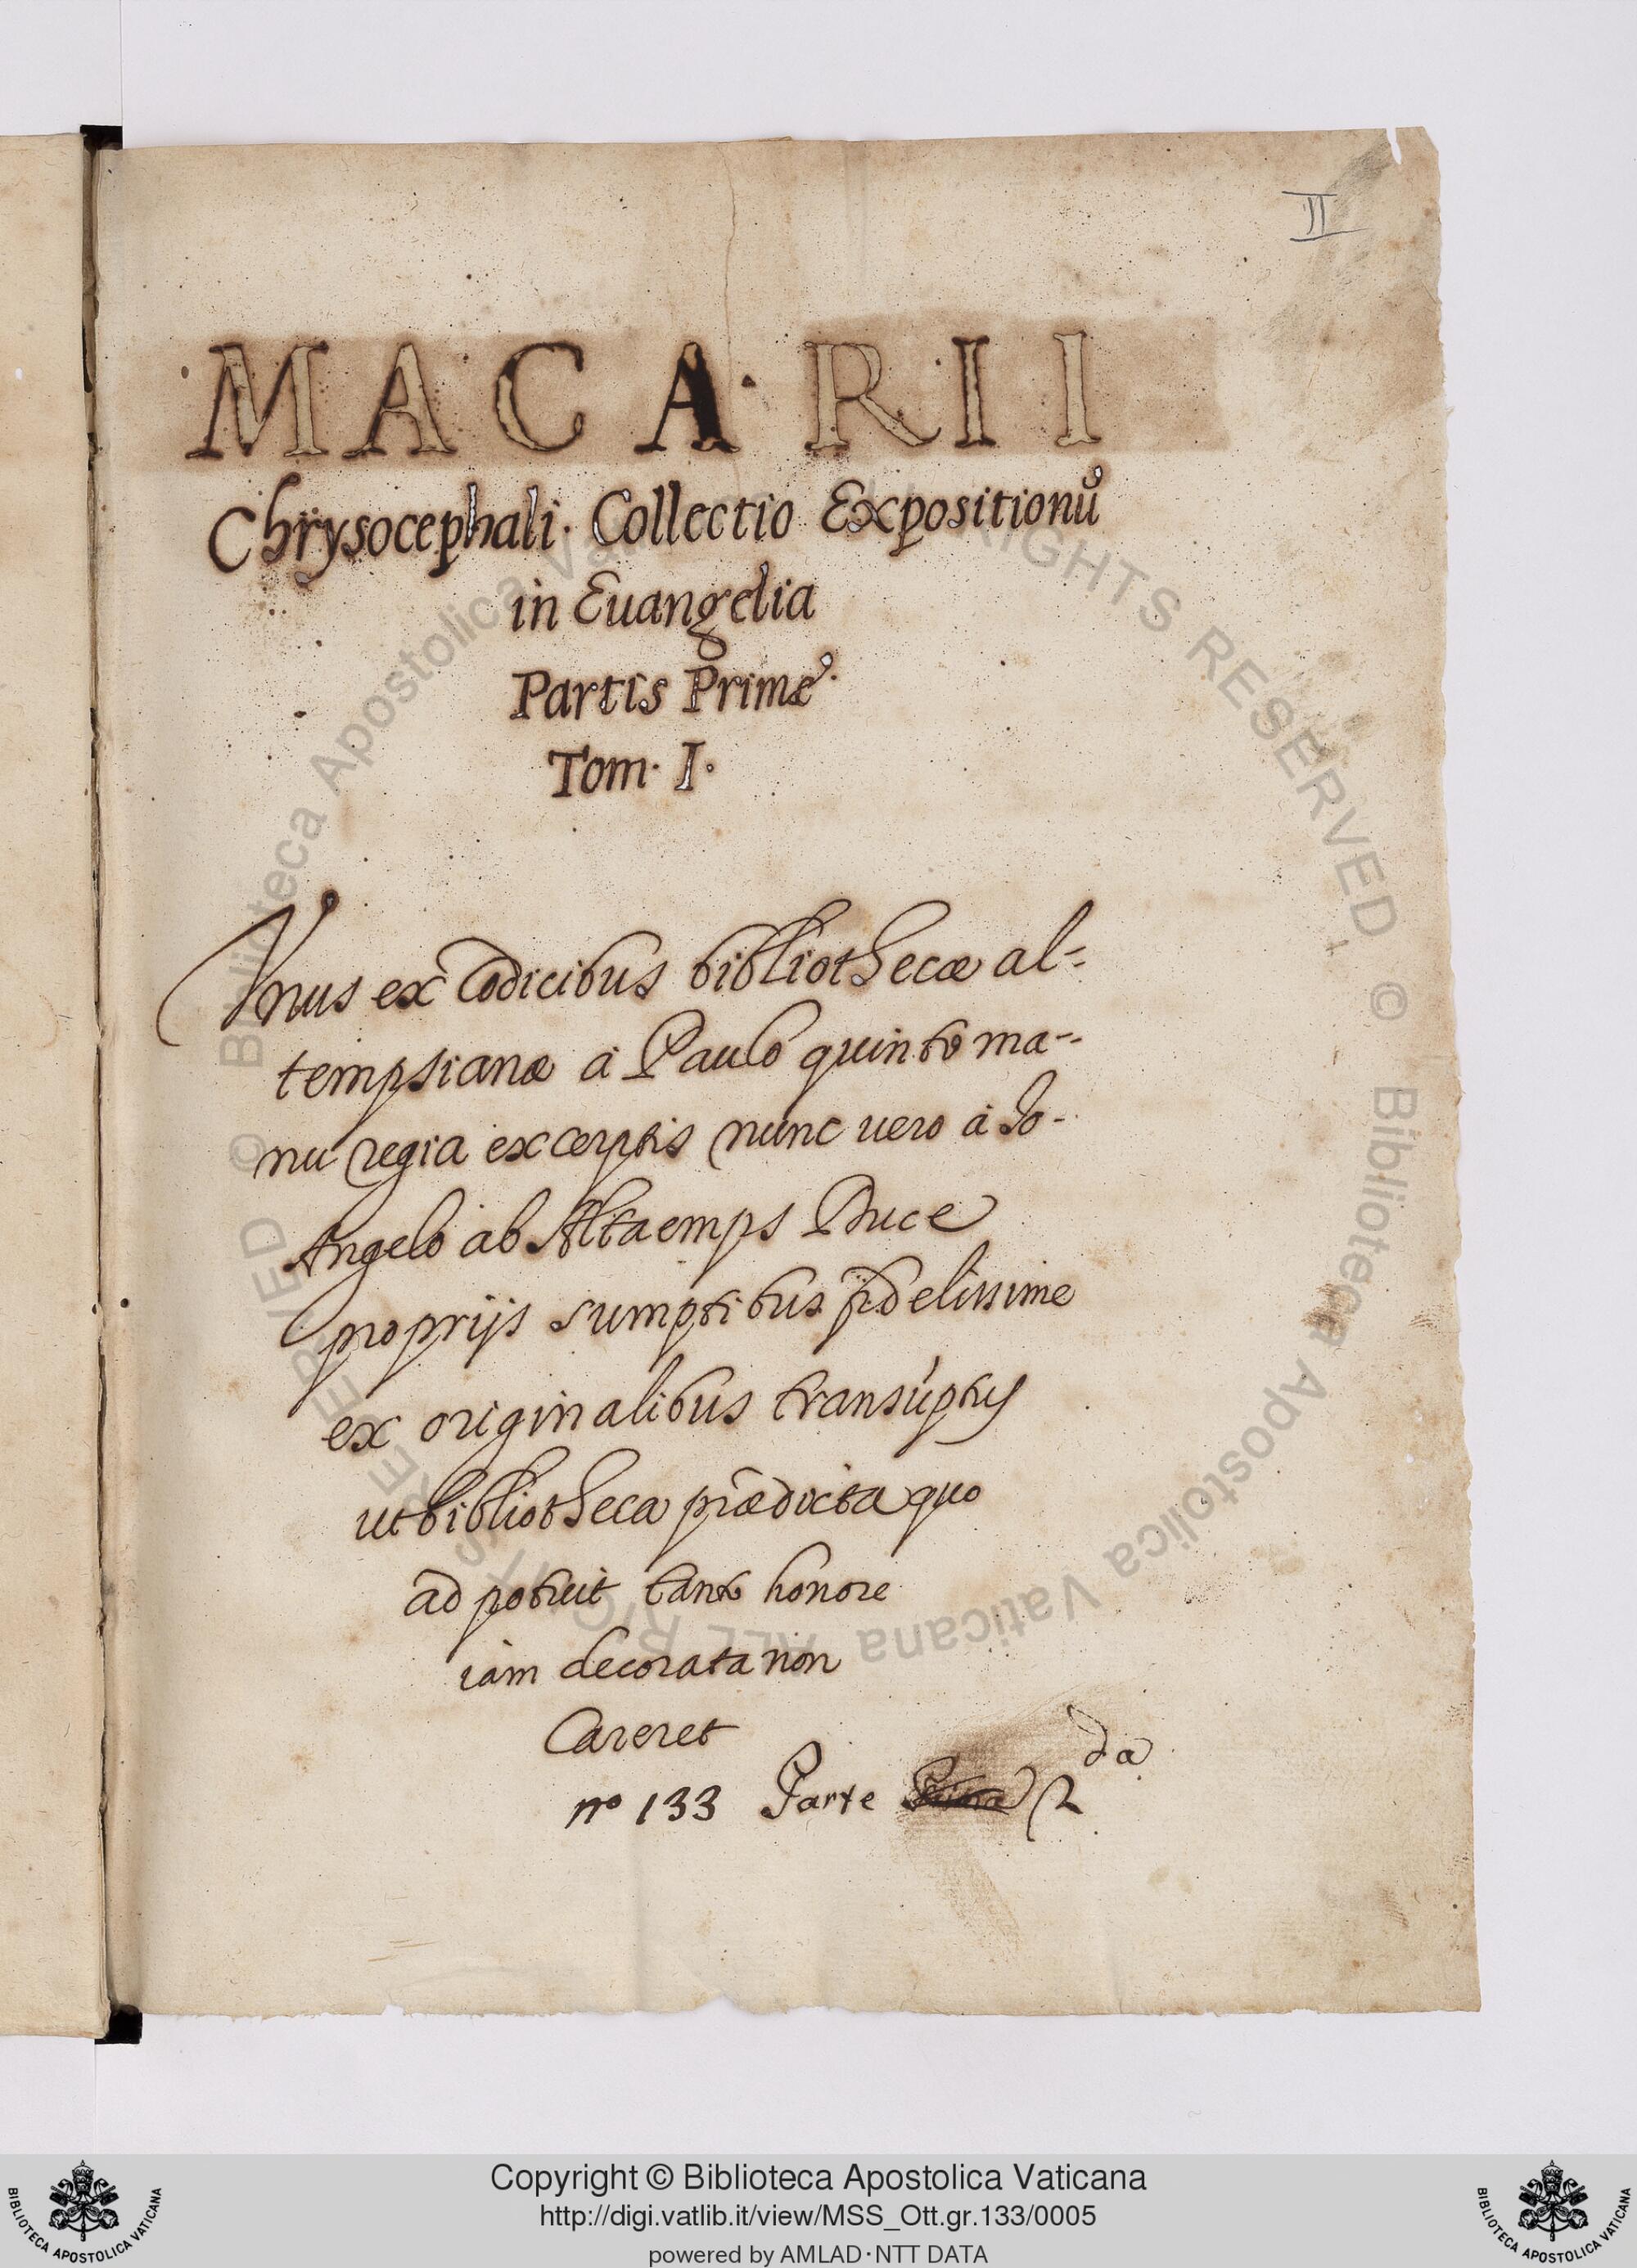 II
MACA·RII
Chrysocephali· Collectio Expositionũ
in Euangelia
Partis Primæ·
Tom· I·
Vnus ex Codicibus bibliothecæ al-
tempsianæ à Paulo quinto ma-
nu regia excerptis nunc uero à Jo-
Angelo ab Altaemps Duce
proprijs sumptibus fidelissime
ex originalibus transũptus
ut bibliotheca prædicta quo
ad potuit tanto honore
iam decorata non
Careret
nº 133 Parte Prima 2da
© Biblioteca Apostolica Vaticana ALL RIGHTS RESERVED
© Biblioteca Apostolica Vaticana ALL RIGHTS RESERVED
Copyright © Biblioteca Apostolica Vaticana
http://digi.vatlib.it/view/MSS_Ott.gr.133/0005
powered by AMLAD·NTT DATA
BIBLIOTECA APOSTOLICA VATICANA
BIBLIOTECA APOSTOLICA VATICANA